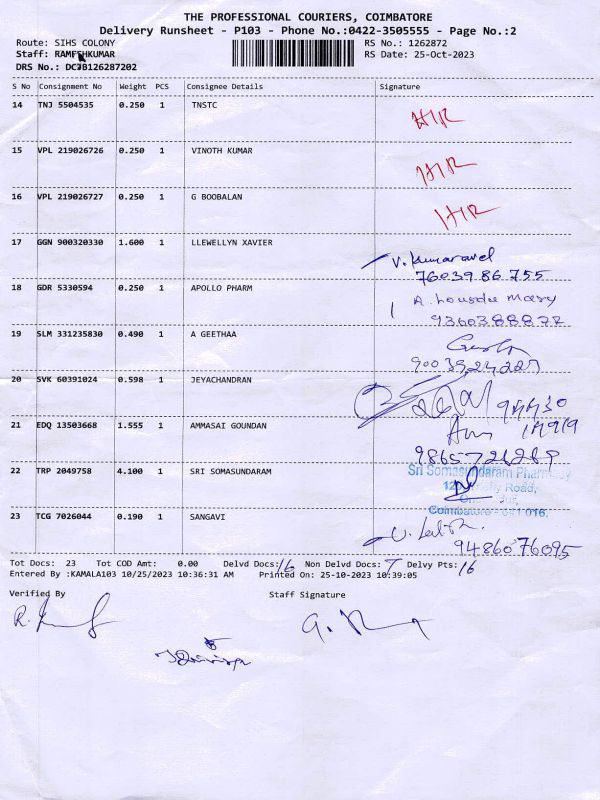 THE PROFESSIONAL COURIERS, COIMBATORE
Delivery Runsheet - P103 - Phone No.:0422-3505555 - Page No.:2
Route: SIHS COLONY
RS No.: 1262872
Staff: RAMESHKUMAR
RS Date: 25-Oct-2023
DRS No.: DC3B126287202
S No Consignment No Weight PCS Consignee Details Signature
14 TNJ 5504535 0.250 1 TNSTC
15 VPL 219026726 0.250 1 VINOTH KUMAR
16 VPL 219026727 0.250 1 G BOOBALAN
17 GGN 900320330 1.600 1 LLEWELLYN XAVIER V. Kumaravel
7603986755
18 GDR 5330594 0.250 1 APOLLO PHARM A. Lousdu Mary
9360388877
19 SLM 331235830 0.490 1 A GEETHAA
20 SVK 60391024 0.598 1 JEYACHANDRAN
21 EDQ 13503668 1.555 1 AMMASAI GOUNDAN
22 TRP 2049758 4.100 1 SRI SOMASUNDARAM Sri Somasundaram Pharmacy
Road,
Coimbatore - 641 016.
23 TCG 7026044 0.190 1 SANGAVI
9486076095
Tot Docs: 23 Tot COD Amt: 0.00 Delvd Docs: 16 Non Delvd Docs: 7 Delvy Pts: 16
Entered By :KAMALA103 10/25/2023 10:36:31 AM Printed On: 25-10-2023 10:39:05
Verified By Staff Signature